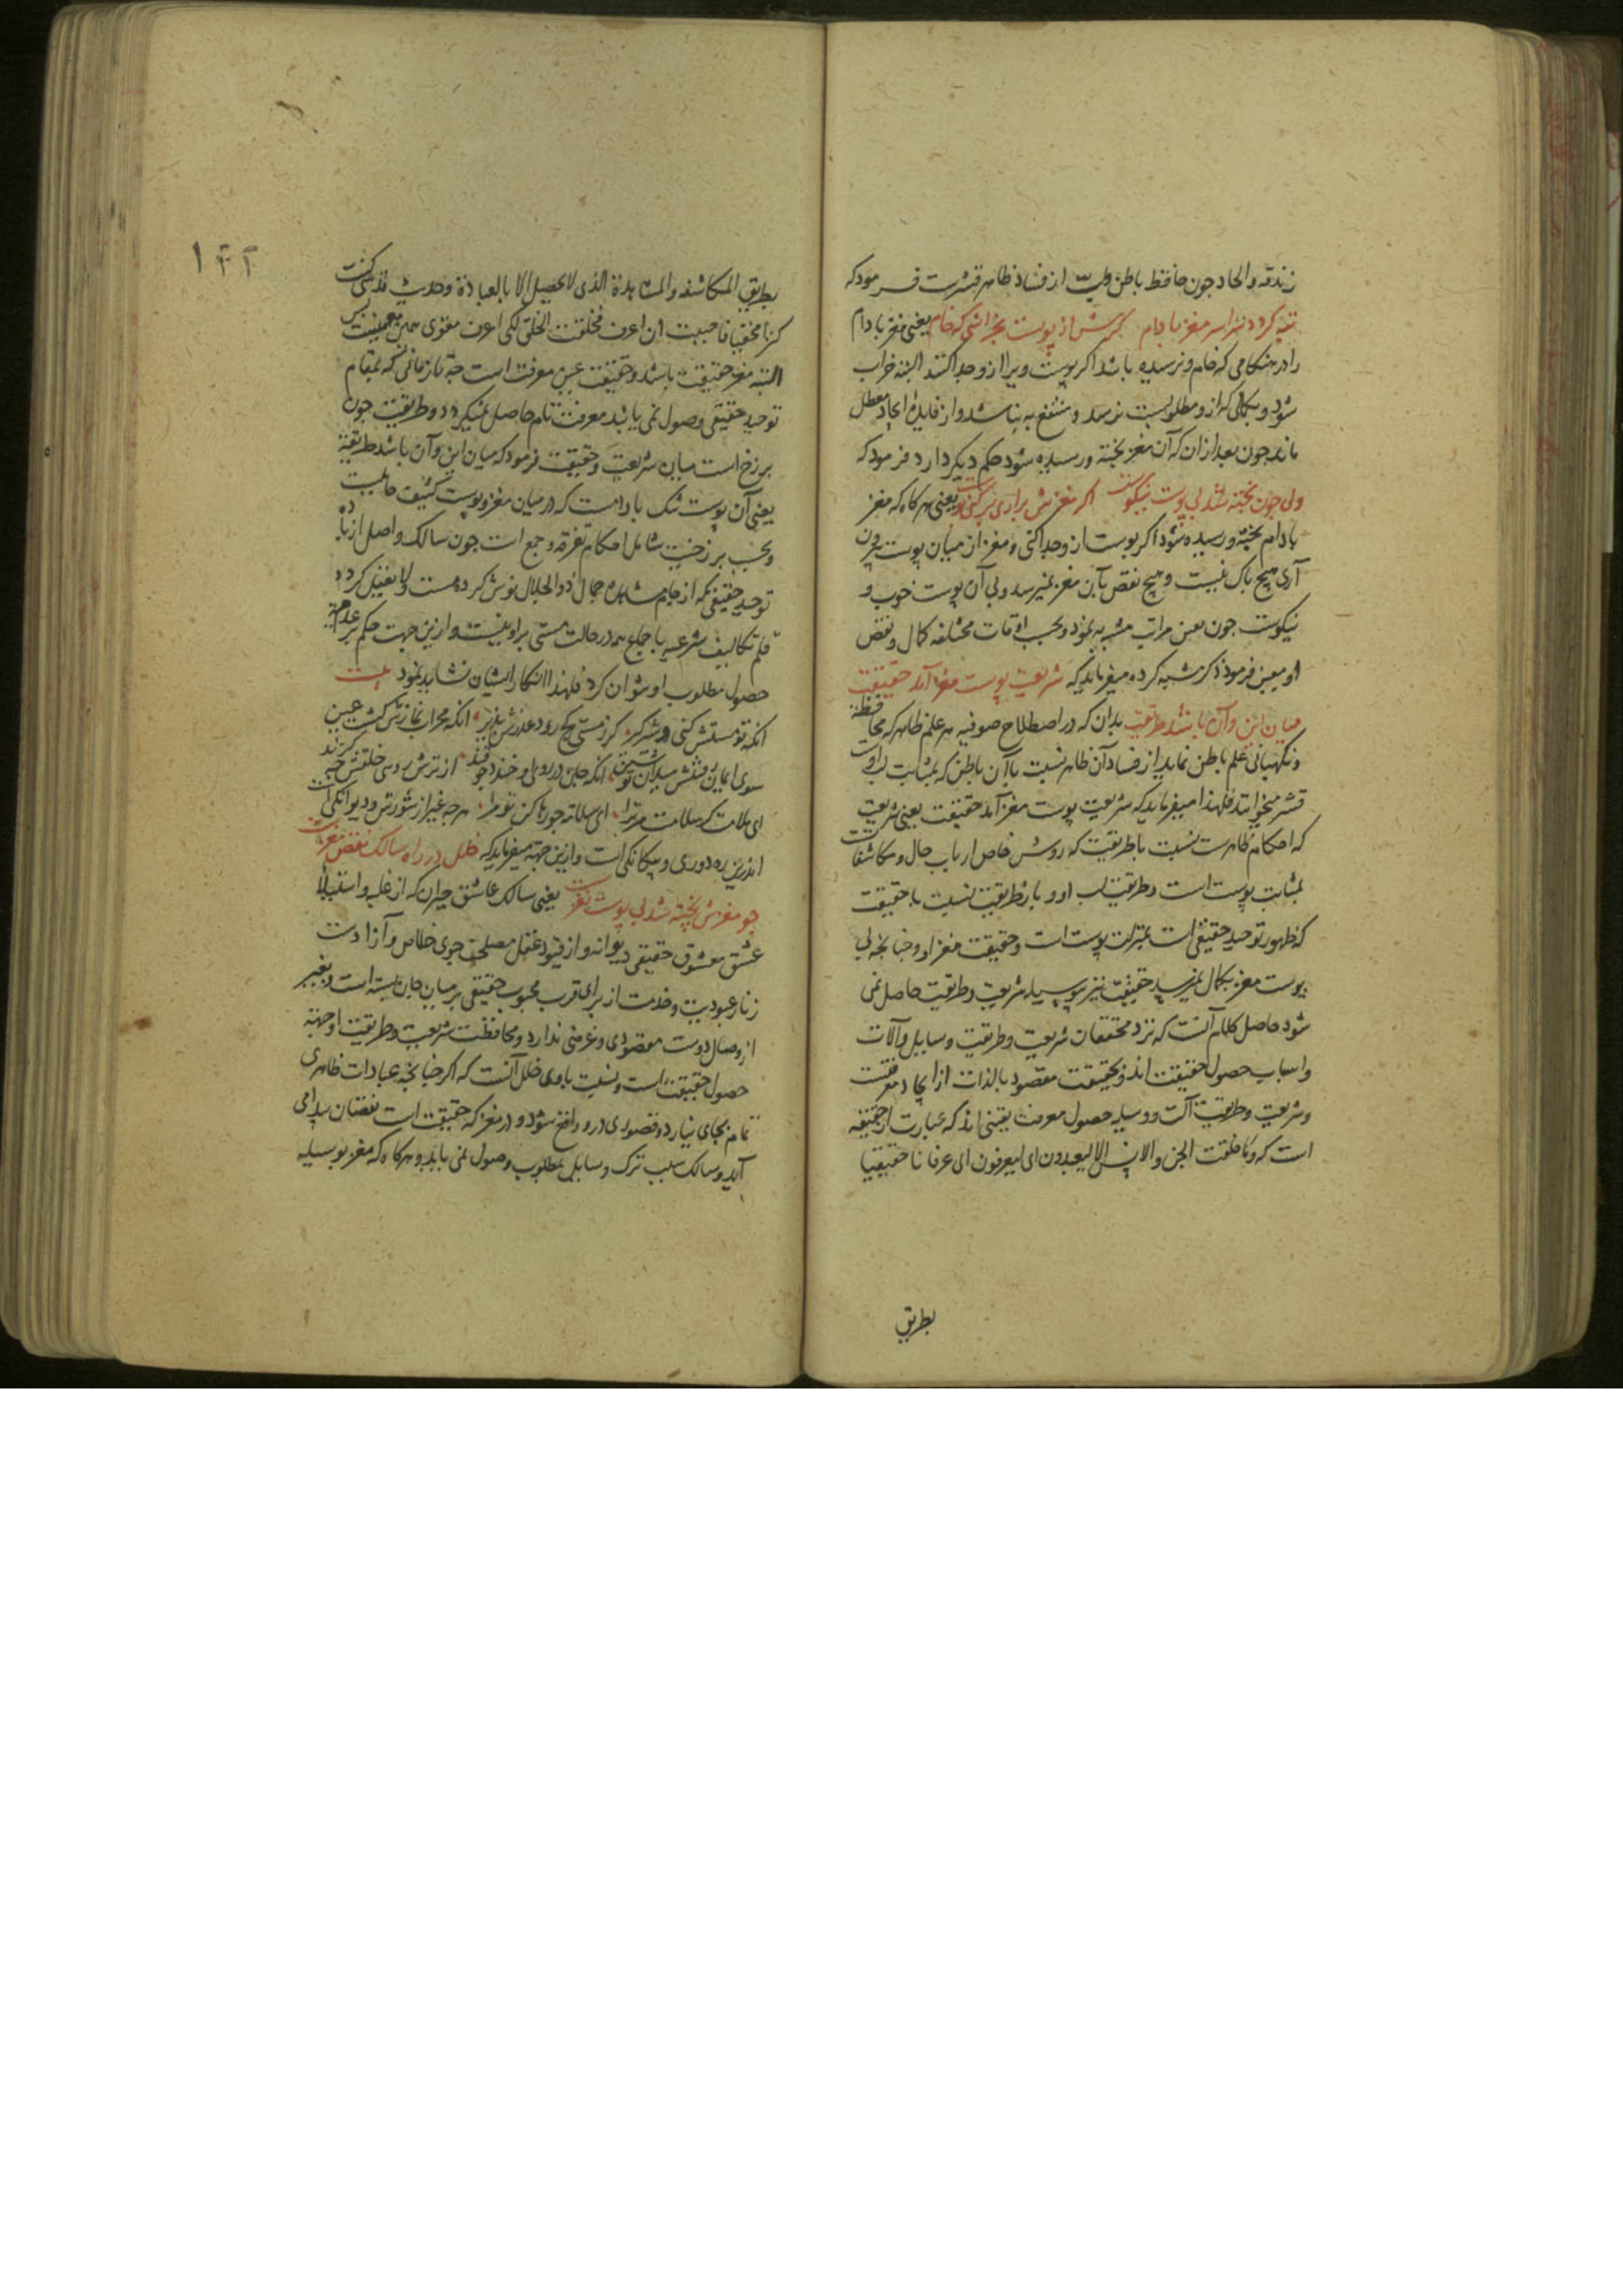 زندقه والحاد چون حافظ باطن ولبّ از فساد ظاهر قشرست فرمود که
تبه گردد سراسر مغز بادام گرش از پوست بخراشی که خام یعنی مغز بادام
را در هنکامی که خام و نرسیده باشد اکر پوست ویرا ازو جدا کنند البته خراب
شود و بکمالی که ازو مطلوبست نرسد و منتفع به نباشد و از فایدهٔ ایجاد معطل
ماند چون بعد از ان که آن مغز پخته و رسیده شود حکم دیکر دارد فرمود که
ولی چون پخته شد بی پوست نیکوست اگر مغزش براری بر کنی پوست یعنی هرکاه که مغز
بادام پخته و رسیده شود اکر پوست ازو جدا کنی و مغز از میان پوست بیرون
آری هیچ باک نیست و هیچ نقص بآن مغز نمیرسد و بی آن پوست خوب و
نیکوست چون بعض مراتب مشبه به نمود و بحسب اوقات مختلفه کمال و نقص
او معین فرمود ذکر مشبه کرده میفرماید که شریعت پوست مغز آمد حقیقت
میان این و آن باشد طریقت بدان که در اصطلاح صوفیه هر علم ظاهر که محافظه
و نکهبانی علم باطن نماید از فساد آن ظاهر نسبت با آن باطن که بمثابت لب اوست
قشر میخوانند فلهذا میفرماید که شریعت پوست مغز آمد حقیقت یعنی شریعت
که احکام ظاهرست نسبت با طریقت که روش خاص ارباب حال و مکاشفات
بمثابت پوست است و طریقت لب او و باز طریقت نسبت با حقیقت
که ظهور توحید حقیقی است بمنزلت پوست است و حقیقت مغز او و چنانچه بی
پوست مغز بکمال نمیرسد حقیقت نیز بی وسیله شریعت و طریقت حاصل نمی
شود حاصل کلام آنست که نزد محققان شریعت و طریقت وسایل و آلات
و اسباب حصول حقیقت اند و حقیقت مقصود بالذات از ایجاد معرفتست
و شریعت و طریقت آلت و وسیله حصول معرفت یقینی اند که عبارت از حقیقه
است که وما خلقت الجن والانس الا لیعبدون ای لیعرفون ای عرفانا حقیقیا
بطریق
۱۴۲
بطریق المکاشفه والمشاهدة الذی لا یحصل الا بالعبادة وحدیث قدسی کنت
کنزا مخفیا فاحببت ان اعرف فخلقت الخلق لکی اعرف مقوی همین معنیست پس
البته مغز حقیقت باشد و حقیقت عین معرفت است چه تا زمانی که بمقام
توحید حقیقی وصول نمی یابد معرفت تام حاصل نمیکردد و طریقت چون
برزخ است میان شریعت و حقیقت فرمود که میان این و آن باشد طریقة
یعنی آن پوست تنک بادامست که در میان مغز و پوست کثیف حایلست
و بحسب برزخیت شامل احکام تفرقه و جمع است چون سالک واصل از بادهٔ
توحید حقیقی که از جام مشاهده جمال ذو الجلال نوش کرده مست و لایعقل کردد
قلم تکالیف شرعیه باجماع همه در حالت مستی براو نیست و ازین جهت حکم بر عدم
حصول مطلوب او نتوان کرد فلهذا انکار ایشان نشاید نمود بیت
انکه تو مستش کنی و شیرگیر گر ز مستی کج رود عذرش پذیر انکه محراب نمازش گشت عین
سوی ایمان رفتنش میدان تو شین انکه جان در روی او خندد چو قند از ترش رویی خلقش چه گزند
ای ملامت گر سلامت مر ترا ای سلامت جو رها کن تو مرا هرچه غیر از شورش و دیوانکی است
اندرین ره دوری و بیکانکی است و ازین جهة میفرماید که خلل در راه سالک نقص مغز است
چو مغزش پخته شد بی پوست نغز است یعنی سالک عاشق حیران که از غلبه و استیلاء
عشق معشوق حقیقی دیوانه و از قیود عقل مصلحت جوی خلاص و آزادست
زنار عبودیت و خدمت از برای قرب محبوب حقیقی بر میان جان بسته است و بغیر
از وصال دوست مقصودی و غرضی ندارد و محافظت شریعت و طریقت او جهة
حصول حقیقت است و نسبت باوی خلل آنست که اکر چنانچه عبادات ظاهری
تمام بجای نیارد و قصوری درو واقع شود و در مغز که حقیقت است نقصان پیدا می
آید و سالک بسبب ترک وسایل بمطلوب وصول نمی یابد و هرکاه که مغز بوسیله